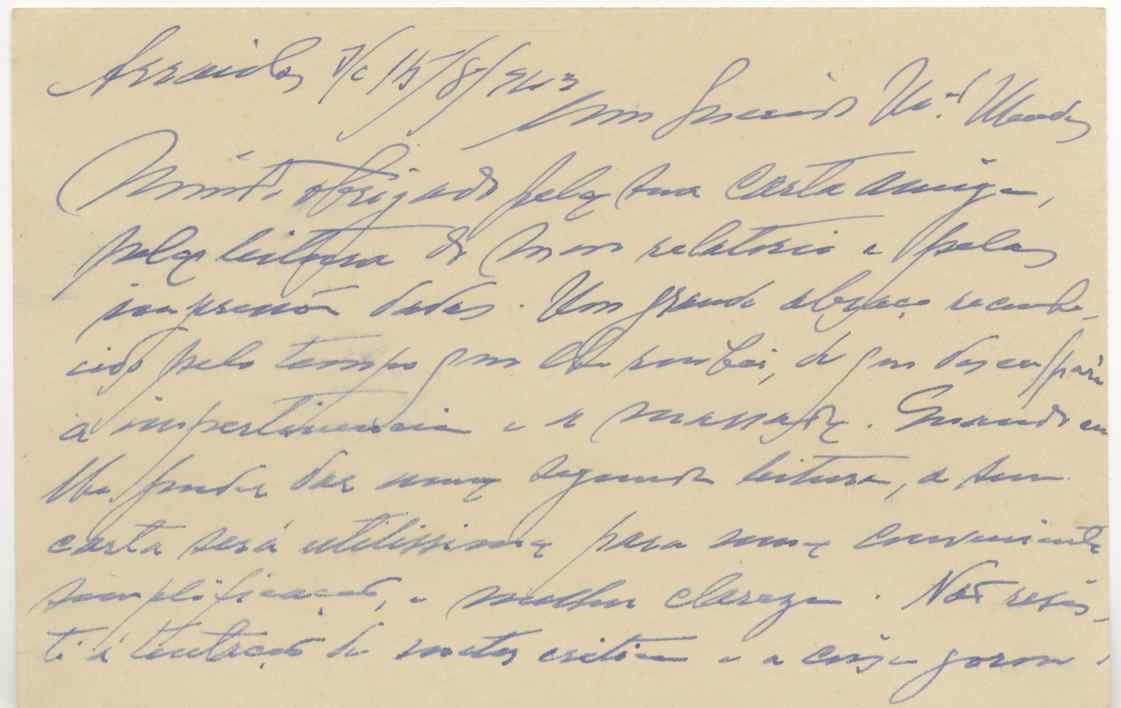 Arraiolos, 15/8/943
Meu Querido Mendes
Muito obrigado pela sua carta amiga,
pela leitura do meu relatorio e pelas
impressões dadas. Um grande abraço reconhe-
cido pelo tempo que lhe roubei, de que desculpará
a impertinencia e a massada. Quando eu
lhe puder dar uma segunda leitura, a sua
carta será utilissima para uma conveniente
simplificação, e melhor clareza. Não resis-
ti á tentação de meter critica e a coisa gorou